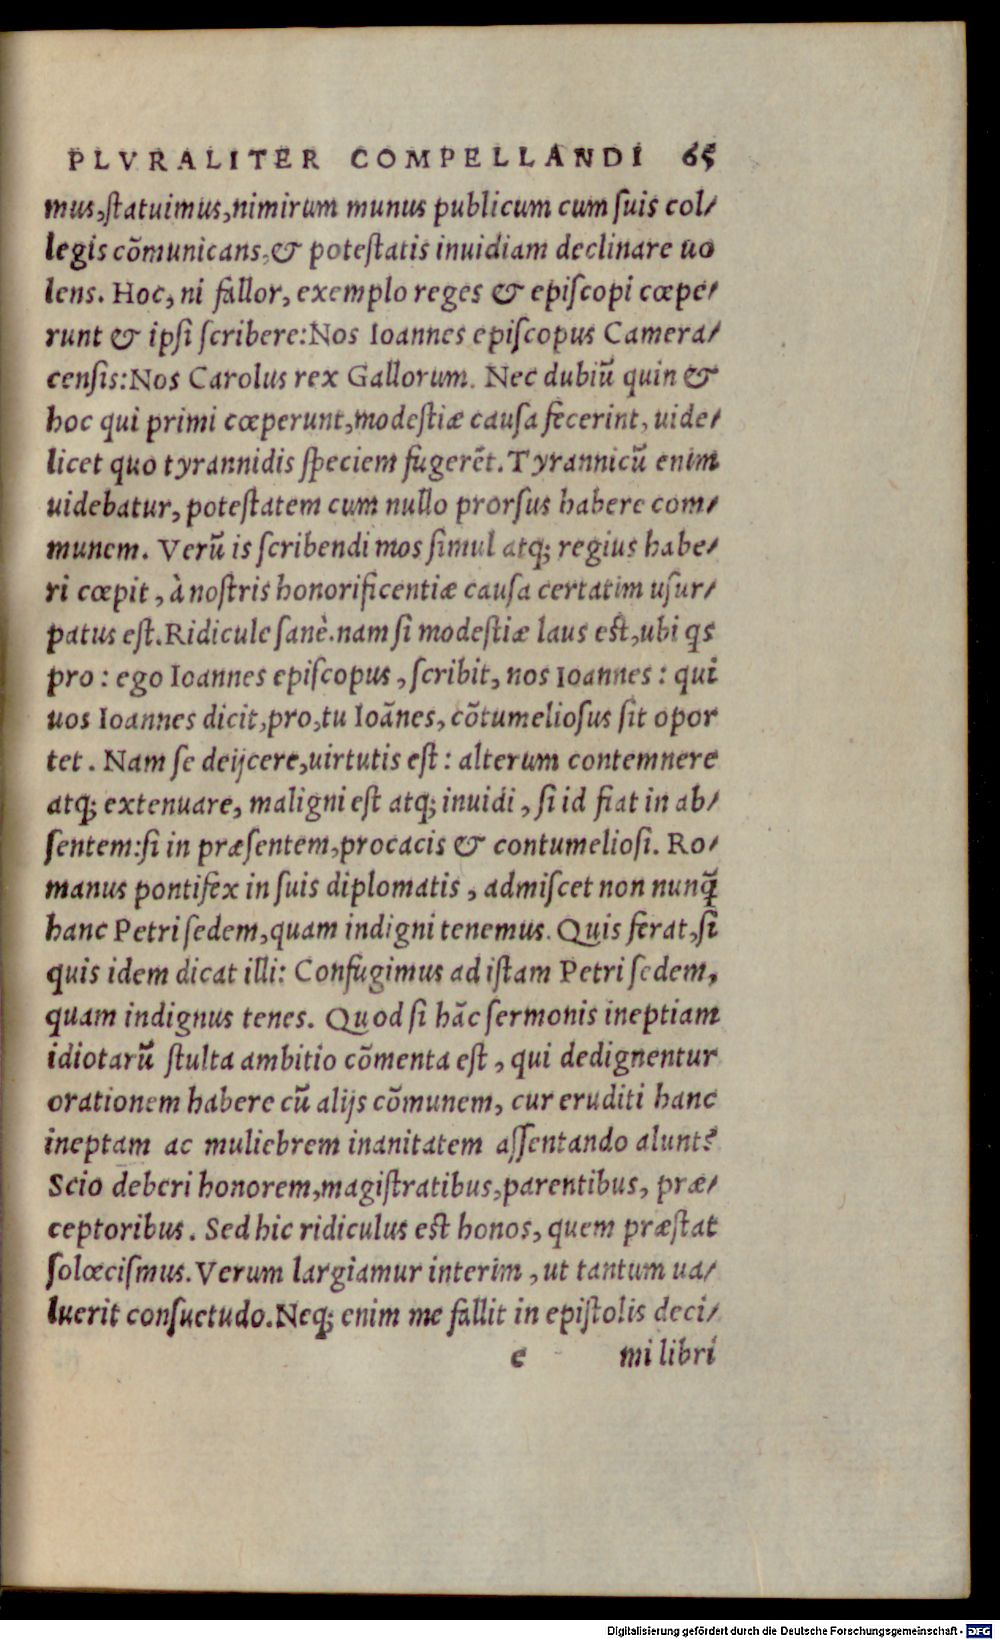 PLVRALITER COMPELLANDI 65
mus,ſtatuimus,nimirum munus publicum cum ſuis col/
legis cõmunicans,& poteſtatis inuidiam declinare uo
lens. Hoc, ni fallor, exemplo reges & epiſcopi cœpe/
runt & ipſi ſcribere:Nos Ioannes epiſcopus Camera/
cenſis:Nos Carolus rex Gallorum. Nec dubiũ quin &
hoc qui primi cœperunt,modeſtiæ cauſa fecerint, uide/
licet quo tyrannidis ſpeciem fugerẽt. Tyrannicũ enim
uidebatur, poteſtatem cum nullo prorſus habere com/
munem. Verũ is ſcribendi mos ſimul atq; regius habe/
ri cœpit, à noſtris honorificentiæ cauſa certatim uſur/
patus eſt. Ridicule ſanè. nam ſi modeſtiæ laus eſt,ubi q̃s
pro : ego Ioannes epiſcopus, ſcribit, nos Ioannes : qui
uos Ioannes dicit,pro,tu Ioãnes, cõtumelioſus ſit opor
tet. Nam ſe deijcere,uirtutis eſt : alterum contemnere
atq; extenuare, maligni eſt atq; inuidi, ſi id fiat in ab/
ſentem:ſi in præſentem,procacis & contumelioſi. Ro/
manus pontifex in ſuis diplomatis, admiſcet non nunq̃
hanc Petri ſedem,quam indigni tenemus. Quis ferat,ſi
quis idem dicat illi: Confugimus ad iſtam Petri ſedem,
quam indignus tenes. Quod ſi hãc ſermonis ineptiam
idiotarũ ſtulta ambitio cõmenta eſt, qui dedignentur
orationem habere cũ alijs cõmunem, cur eruditi hanc
ineptam ac muliebrem inanitatem aſſentando alunt?
Scio deberi honorem,magiſtratibus,parentibus, præ/
ceptoribus. Sed hic ridiculus eſt honos, quem præſtat
ſolœciſmus. Verum largiamur interim, ut tantum ua/
luerit conſuetudo. Neq; enim me fallit in epiſtolis deci/
e mi libri
Digitalisierung gefördert durch die Deutsche Forschungsgemeinschaft - DFG